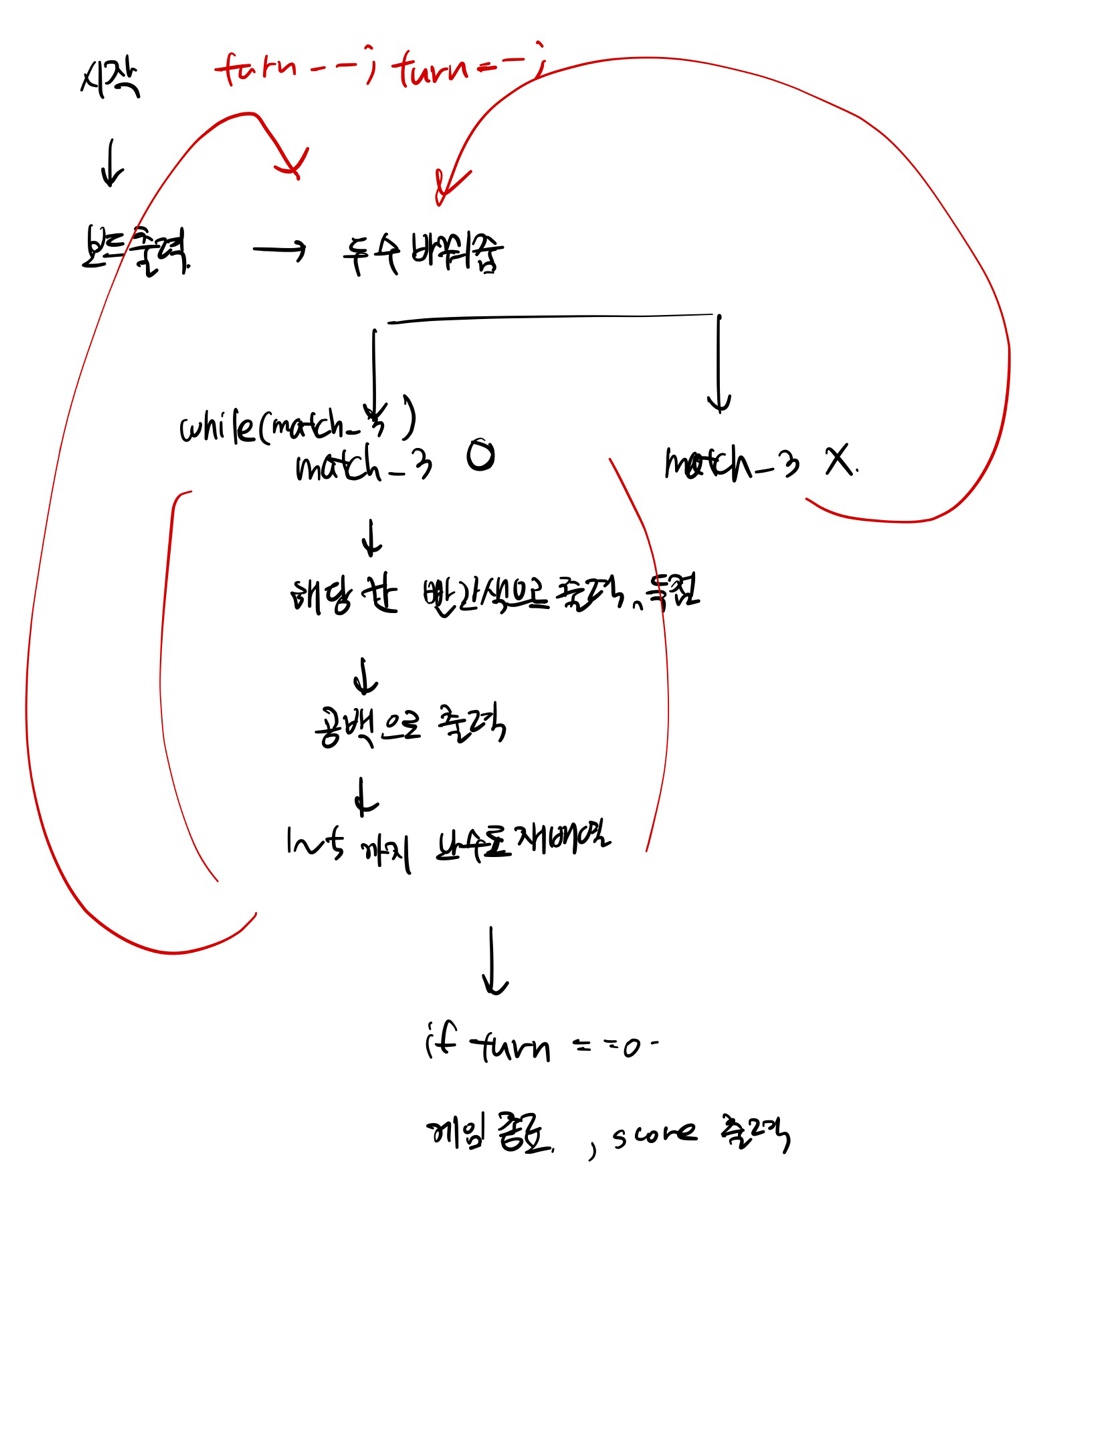 시작 turn--; turn=-;
보드출력. → 두 수 바꿔줌
while(match_3)
match_3 O match_3 X.
해당 칸 빨간색으로 출력, 득점
공백으로 출력
1~5 까지 난수로 재배열
if turn ==0
게임종료. , score 출력